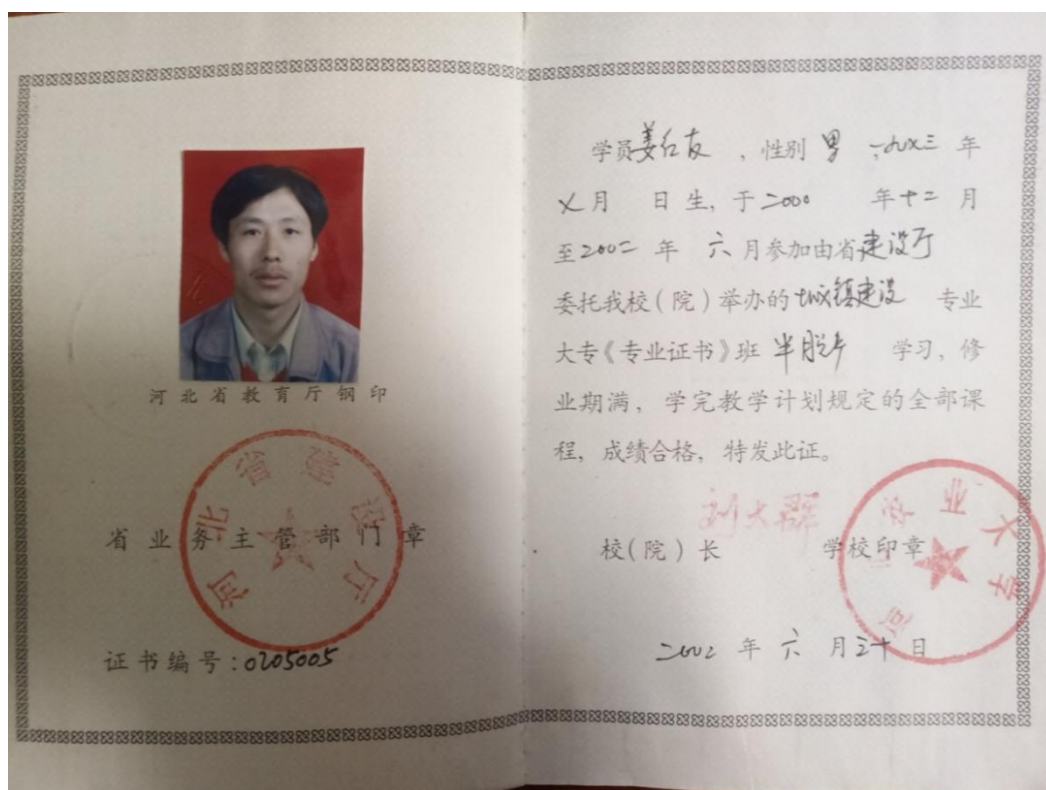 河北省教育厅钢印
河北省建设厅
省业务主管部门章
证书编号：0205005
学员姜红友，性别 男 一九七三 年
七月 日生，于二000 年十二月
至2002年 六月参加由省建设厅
委托我校（院）举办的城镇建设 专业
大专《专业证书》班 半脱产 学习，修
业期满，学完教学计划规定的全部课
程，成绩合格，特发此证。
刘大群
校（院）长 学校印章
农业大学
二00二 年 六 月三十日